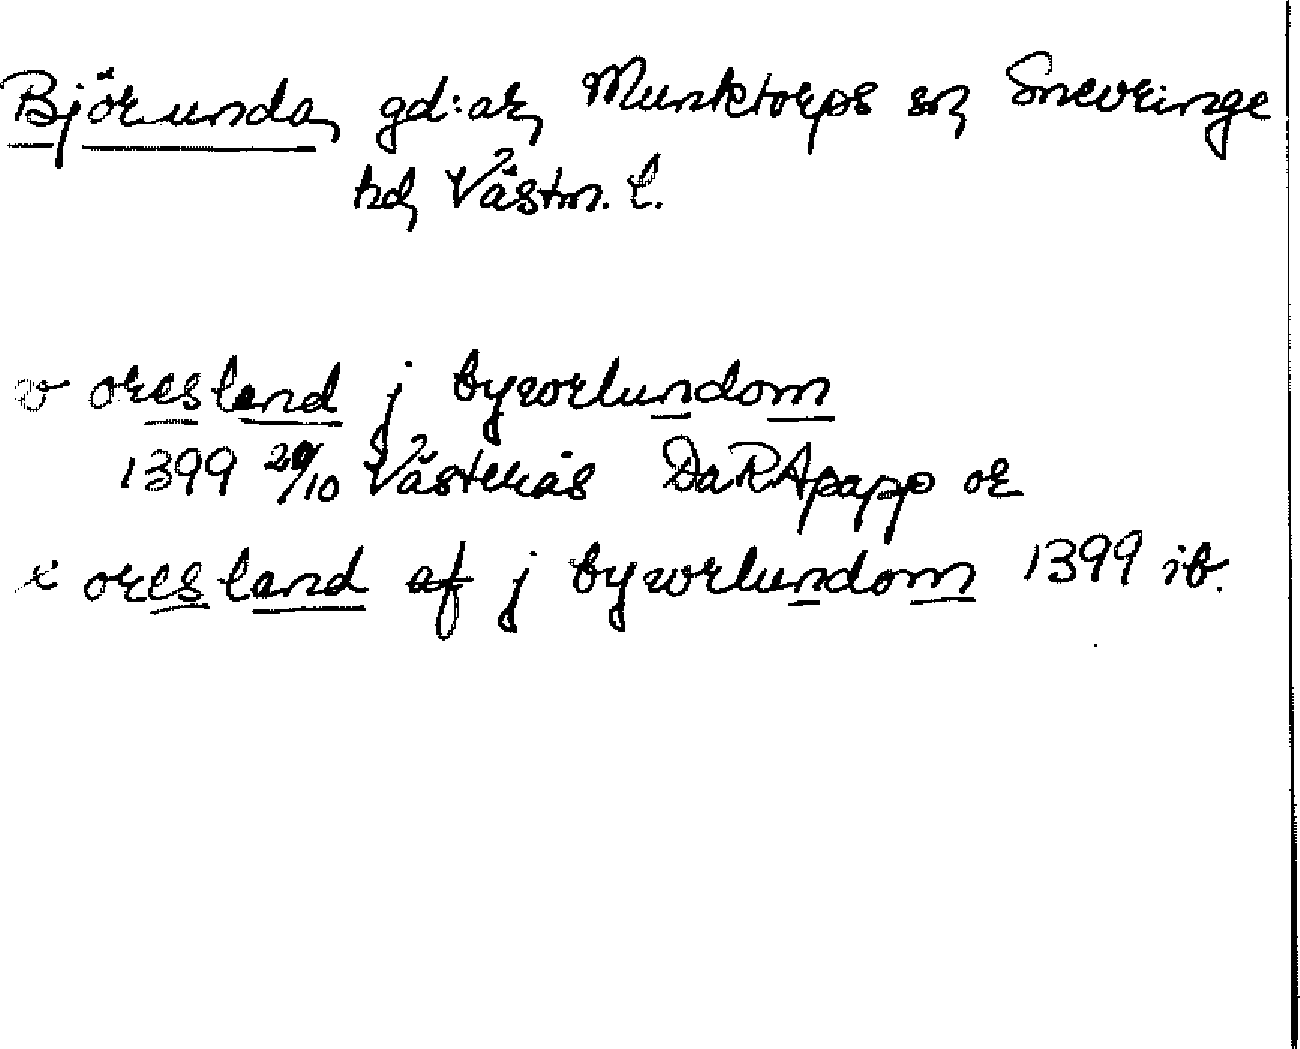 Björunda, gd:ar, Munktorps sn, Snevringe
hd, Västm. l.
v oresland j byworlundom
1399 29/10 Västerås DaRApapp or
x oresland af j byworlundom 1399 ib.